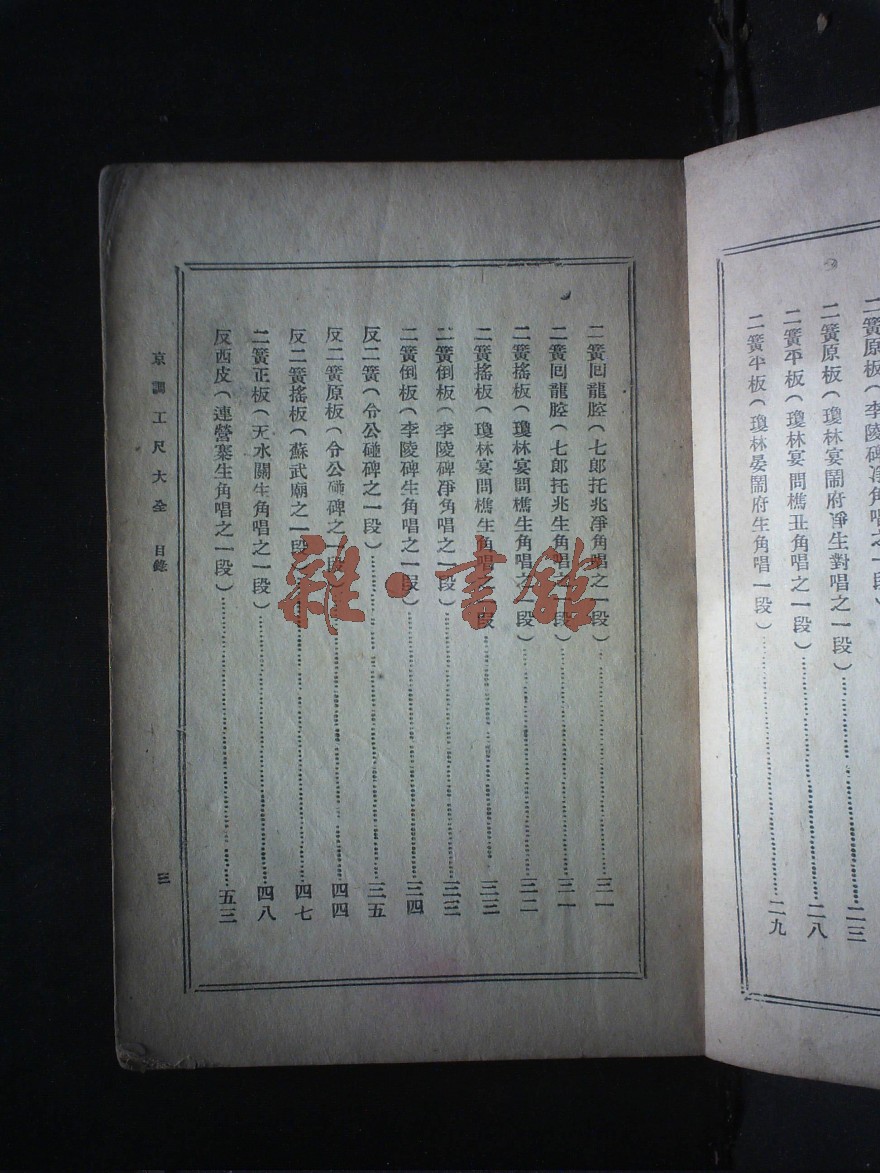 二簧原板（李陵碑凈角唱之一段）二三
二簧原板（瓊林宴鬧府凈生對唱之一段）……二八
二簧平板（瓊林宴問樵丑角唱之一段）……二八
二簧平板（瓊林晏鬧府生角唱一段）……二九
二簧囘龍腔（七郎托兆凈角唱之一段）……三一
二簧囘龍腔（七郎托兆生角唱之一段）……三一
二簧搖板（瓊林宴問樵生角唱之一段）……三二
二簧搖板（瓊林宴問樵生角唱之一段……三三
二簧倒板（李陵碑凈角唱之一段）……三三
二簧倒板（李陵碑生角唱之一段）……三四
反二簧（令公碰碑之一段）……三五
反二簧原板（令公碰碑之一段）……四四
反二簧搖板（蘇武廟之一段）……四七
二簧正板（天水關生角唱之一段）……四八
反西皮（連營寨生角唱之一段）……五三
京調工尺大全 目錄
三
雜·書館